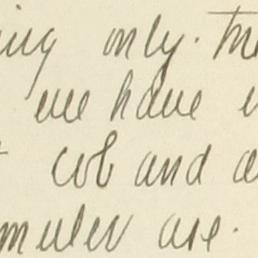 ing only. The
we have
cob and a
mules are.